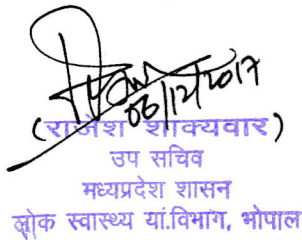 06/12/2017
(राजेश शाक्यवार)
उप सचिव
मध्यप्रदेश शासन
लोक स्वास्थ्य यां.विभाग, भोपाल